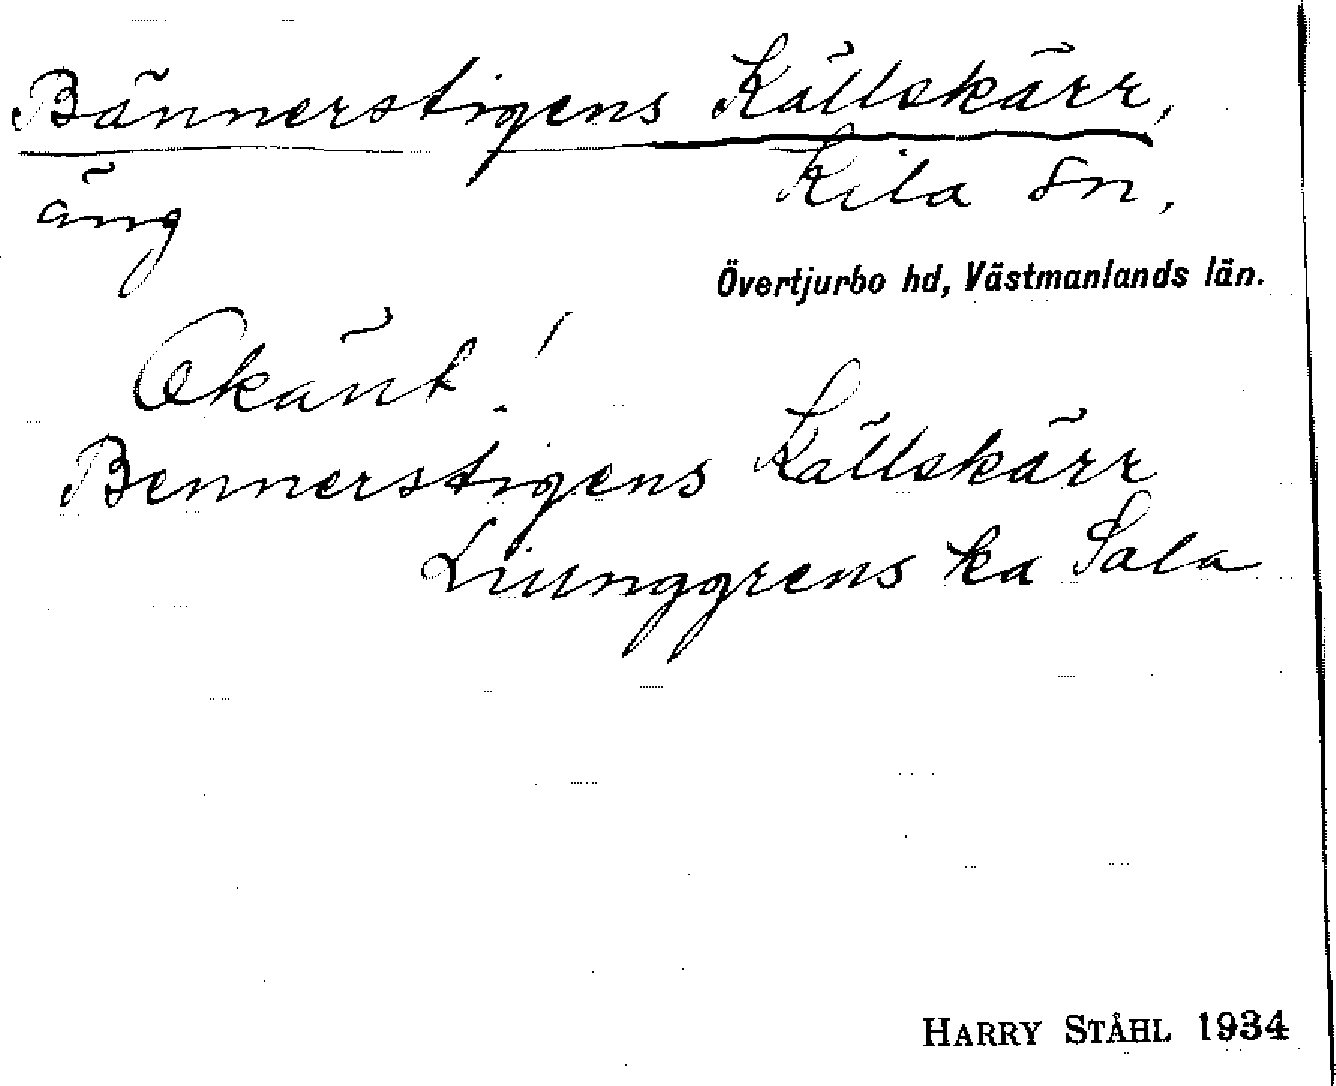 Bännerstigens Källskärr,
äng Kila sn,
Övertjurbo hd, Västmanlands län.
Okänt!
Bennerstigens Källskärr
Liunggrens ka Sala
HARRY STÅHL 1934